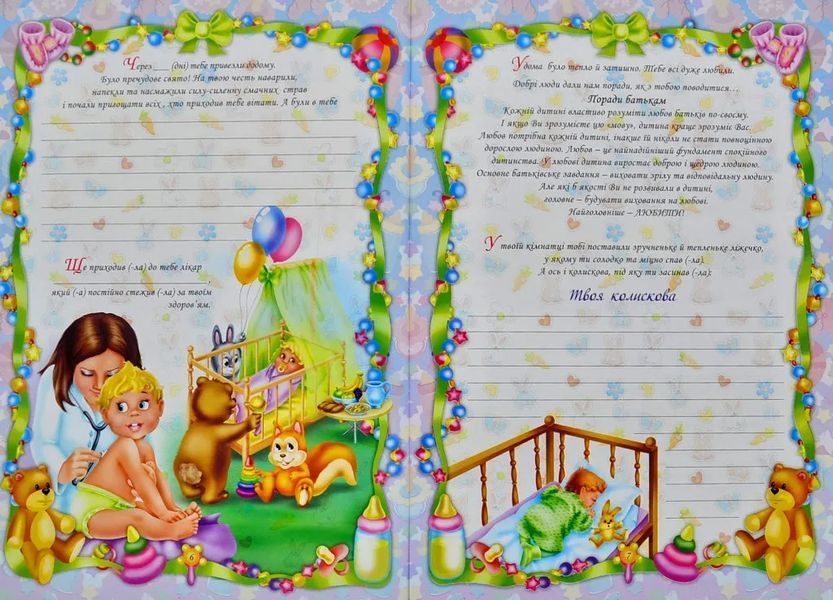 Через ___ (дні) тебе привезли додому.
Було пречудове свято! На твою честь наварили,
напекли та насмажили силу-силенну смачних страв
і почали пригощати всіх , хто приходив тебе вітати. А були в тебе
Ще приходив (-ла) до тебе лікар
,
який (-а) постійно стежив (-ла) за твоїм
здоров'ям.
6
Удома було тепло й затишно. Тебе всі дуже любили.
Добрі люди дали нам поради, як з тобою поводитися…
Поради батькам
Кожній дитині властиво розуміти любов батьків по-своєму.
І якщо Ви зрозумієте цю «мову», дитина краще зрозуміє Вас.
Любов потрібна кожній дитині, інакше їй ніколи не стати повноцінною
дорослою людиною. Любов – це найнадійніший фундамент спокійного
дитинства. У любові дитина виростає доброю і щедрою людиною.
Основне батьківське завдання – виховати зрілу та відповідальну людину.
Але які б якості Ви не розвивали в дитині,
головне – будувати виховання на любові.
Найголовніше – ЛЮБИТИ!
У твоїй кімнатці тобі поставили зручненьке й тепленьке ліжечко,
у якому ти солодко та міцно спав (-ла).
А ось і колискова, під яку ти засинав (-ла):
Твоя колискова
7